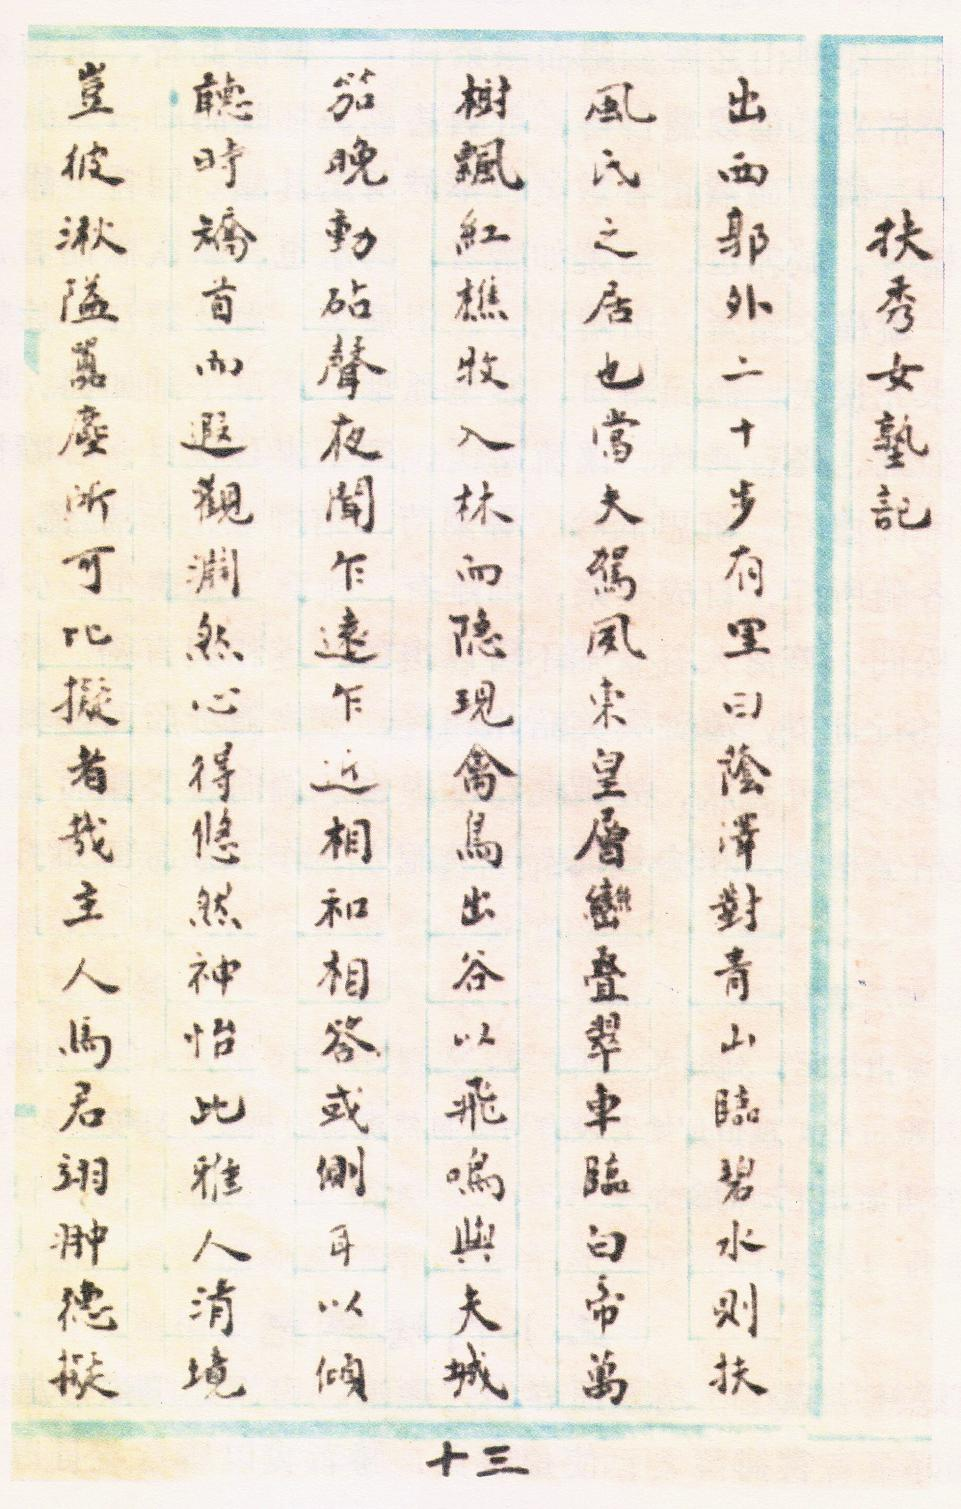 扶秀女塾記
出西郭外二十步有里曰蔭澤對青山臨碧水則扶
風氏之居也當夫駕夙東皇層巒疊翠車臨白帝萬
樹飄紅樵牧入林而隐現禽鳥出谷以飛鳴與夫城
笳晚動砧聲夜聞乍遠乍近相和相答或側耳以傾
聽時矯首而遐觀淵然心得悠然神怡此雅人清境
豈彼湫隘囂塵所可比擬者哉主人馬君翊翀德擬
十三